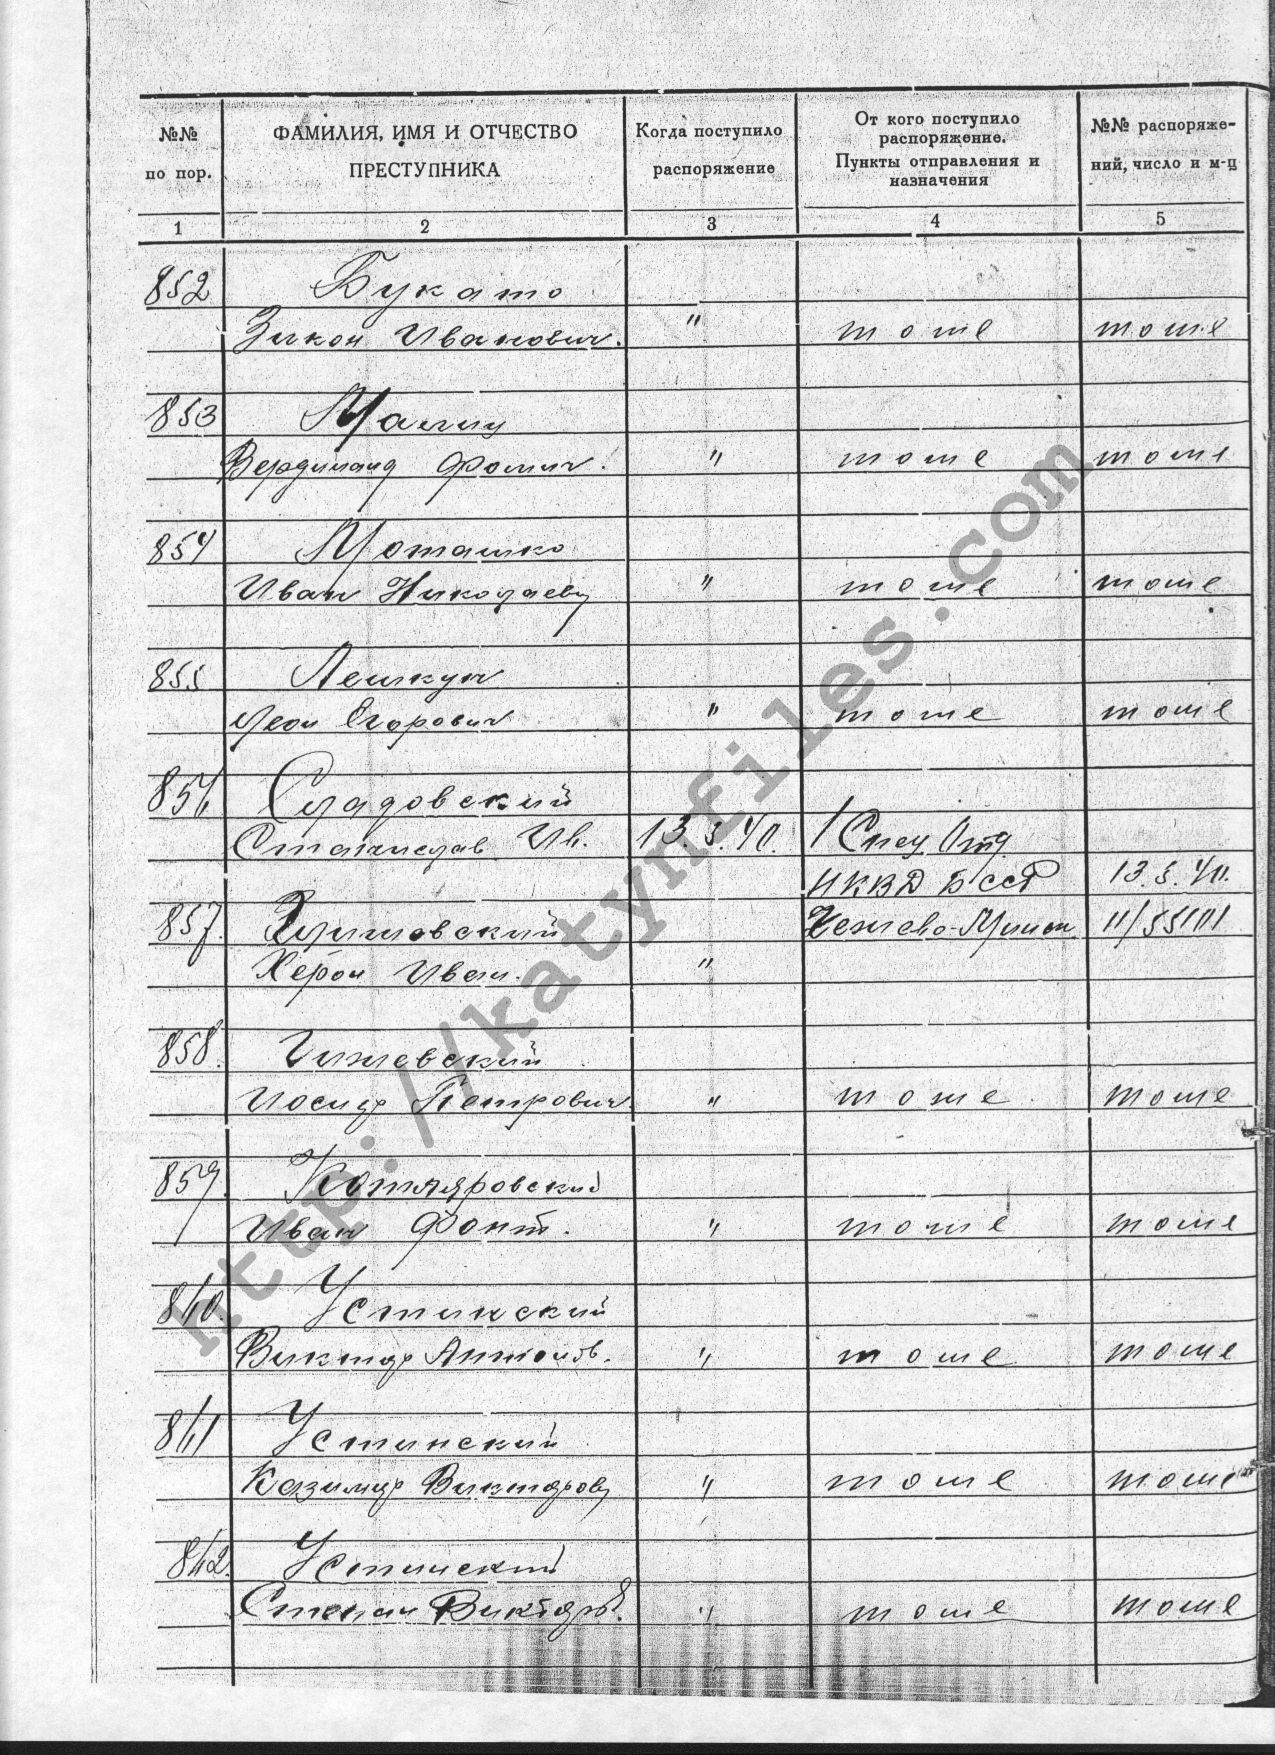 №№ по пор.
ФАМИЛИЯ, ИМЯ И ОТЧЕСТВО ПРЕСТУПНИКА
Когда поступило распоряжение
От кого поступило распоряжение. Пункты отправления и назначения
№№ распоряже-ний, число и м-ц
1 2 3 4 5
852 Букато
Зикон Иванович. " тоже тоже
853
Фомич. " тоже тоже
854 Моташко
Иван Николаев " тоже тоже
855
Леон Егорович " тоже тоже
856 Сладовский
Станислав Ив. 13.5.40. 1 Спец Отд
НКВД БССР 13.5.40.
857.
Иван. "
858. Чижевский
Иосиф Петрович. " тоже тоже
859. Котляровский
Иван " тоже тоже
860. Устинский
Виктор Антонов. " тоже тоже
861 Устинский
Казимир Викторов " тоже тоже
862. Устинский
Степан Викторов. " тоже тоже
http://katynfiles.com